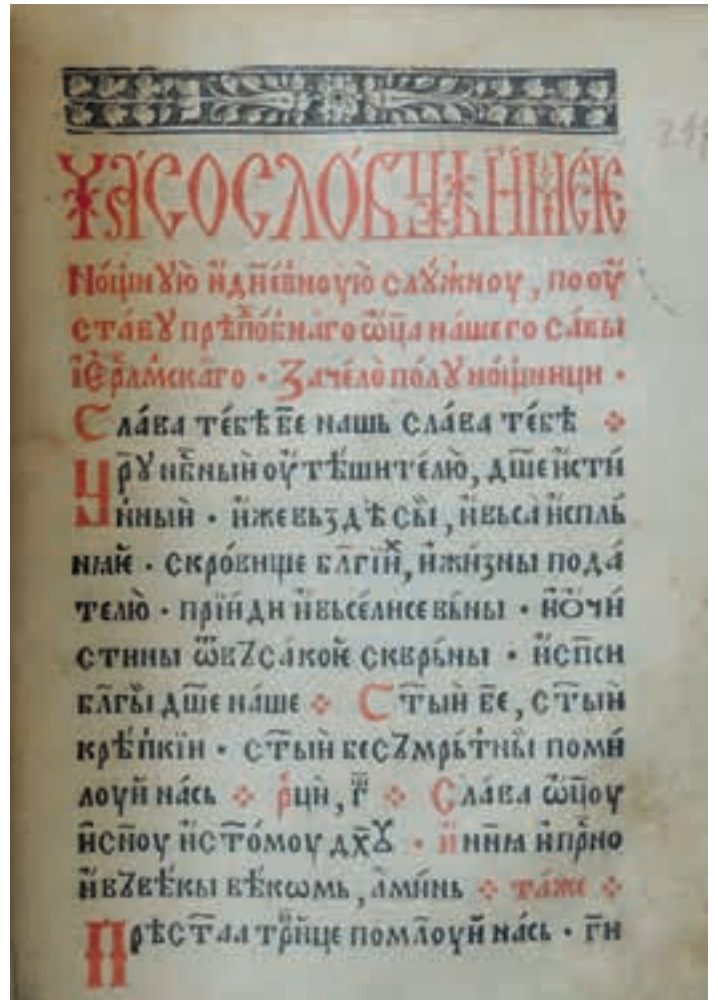 Ча́сосло́вь и҆мѣе҆
Но́щнꙋю̀ и҆дн҃е́вноую̀ слꙋ́жноу, пооу҆
ставꙋ прѣпⷣо́бнаго ѡ҆ц҃а на́шего са́вы
і҆е҆рⷭ҇лⷭ҇мскаго · Заче́ло полꙋно́щници ·
Сла́ва те́бѣ бе҃ нашь сла́ва те́бѣ
Цр҃ꙋ нбⷭ҇ныи оу҆тѣ́шите́лю̀, дш҃е и҆сти́
нныи · и҆же вьздѣ сы̀, и҆вьса̀ и҆спль
нꙗе҆ · скро́вище бл҃гі́иⷯ, и҆жи́зны пода́
телю̀ · прїи́ди и҆вьсе́лисе вьны · и҆ѻ҆чи́
стины ѿвꙁса́кое҆ скврь́ны · и҆сп҃си
бл҃гы̀ дш҃е на́ше Ст҃ыи бе҃, ст҃ыи
крѣ́пкїи · ст҃ыи бесꙁмрь́тны̀ поми́
лоуи на́сь рⷰ҇и, г҃ Сла́ва ѡ҆ц҃оу
и҆сн҃оу и҆ст҃о́моу дх҃ꙋ · и҆ нн҃ꙗ и҆прⷭ҇но
и҆вꙁвѣ́кы вѣ́кѡмь, а҆ми́нь та́же
Прѣст҃аа трⷪ҇ице помл҃оуи на́сь · гн҃